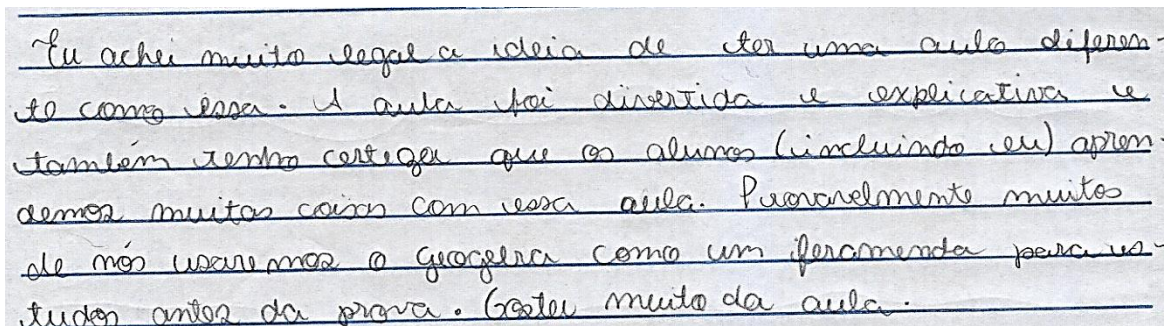 Eu achei muito legal a ideia de ter uma aula diferen-
te como essa. A aula foi divertida e explicativa e
também tenho certeza que os alunos (incluindo eu) apren-
demos muitas coisas com essa aula. Provavelmente muitos
de nós usaremos o geogebra como um feramenda para es-
tudos antes da prova. Gostei muito da aula.